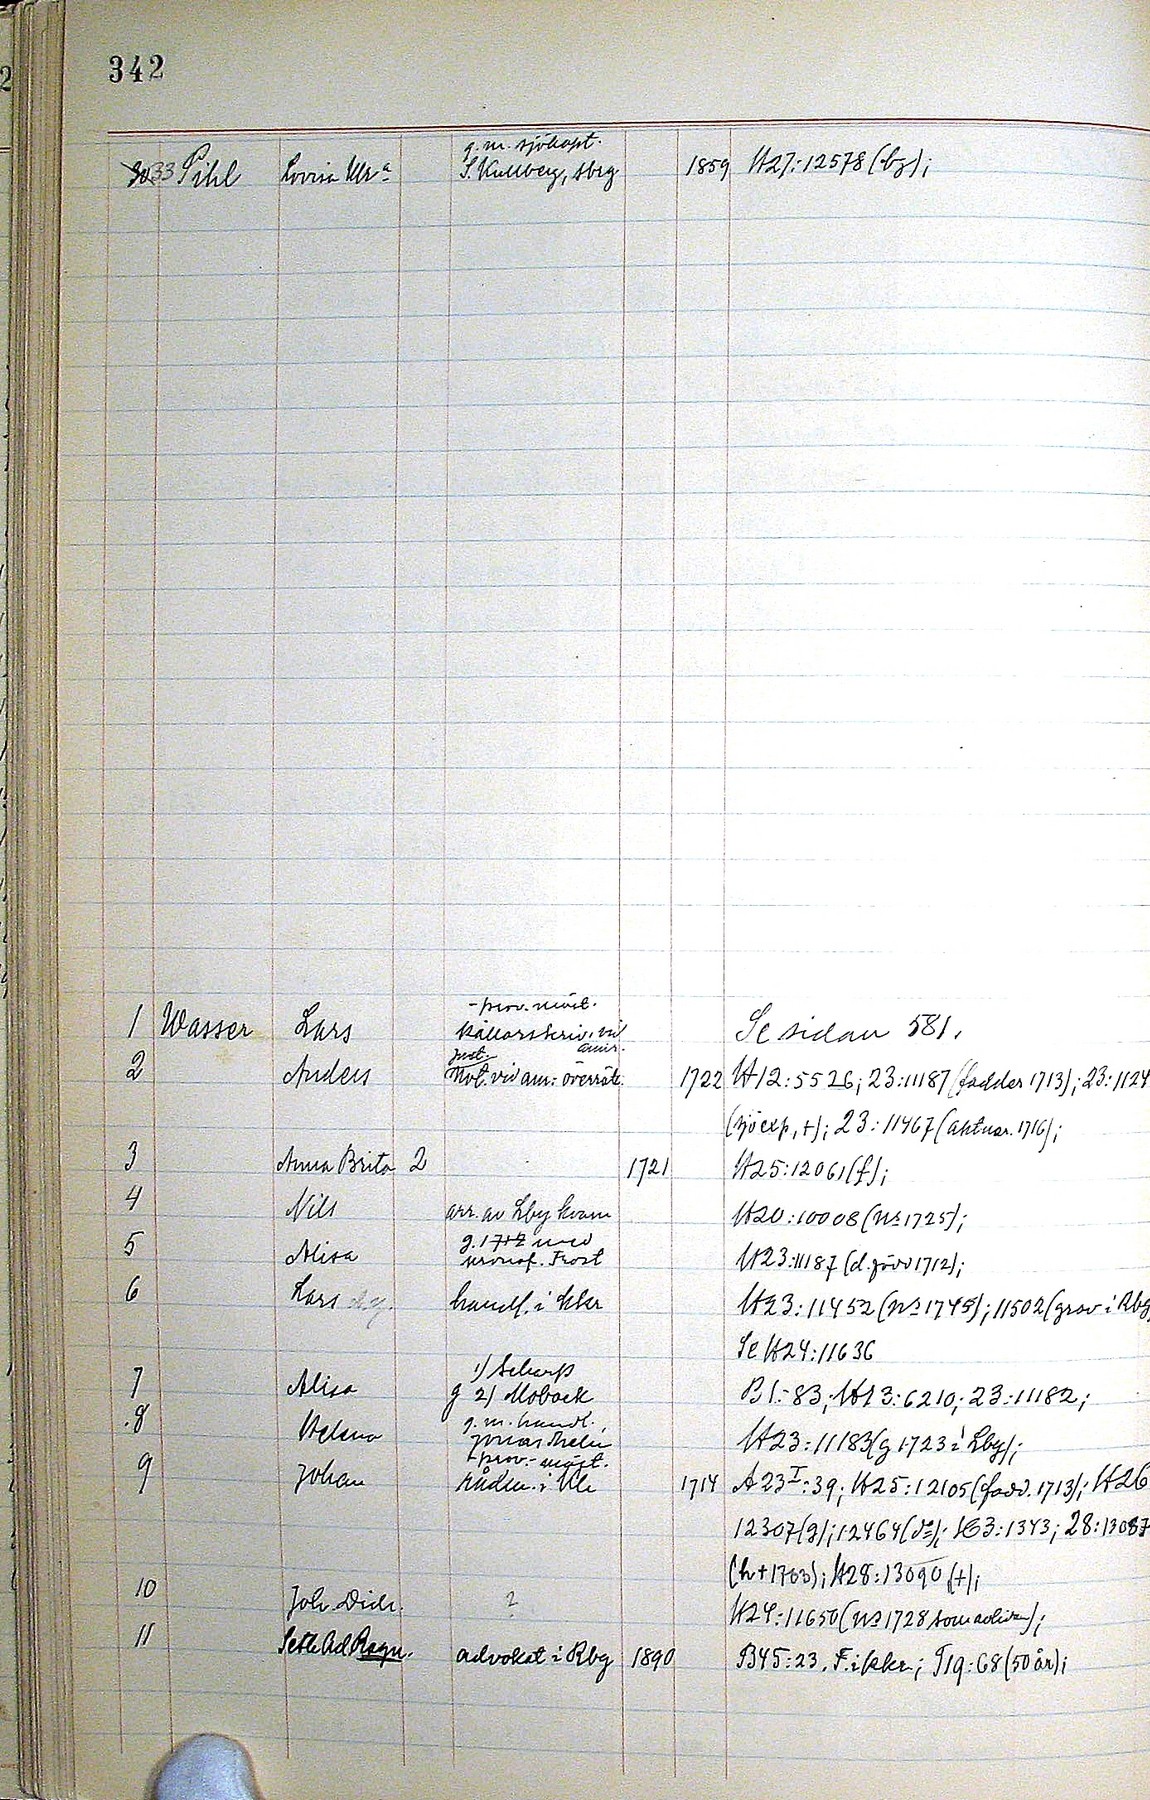 342
g. m. sjökapt.
33 Pihl Lovisa Ulr:a S. Kullberg, sbrg 1859 H27:12578 (bg);
- prov. mäst.
1 Wasser Lars källarskriv. vid Se sidan 581.
amir.
just.
2 Anders Not. vid am: överrätt 1722 H12:5526; 23:11187 (fadder 1713); 23:1124
(sjöexp, +); 23:11467 (aktuar. 1716);
3 Anna Brita 2 1721 H25:12061 (f);
4 Nils arr. av Lby kvarn H20:10008 (nº 1725);
g. 1712 med
5 Alisa kronof. Frost H23:11187 (d. 1712);
6 Lars d.y. handl. i kkr H23:11452 (nº 1745); 11502 (grav i Rbg
Se H24:11636
1) Scharp
7 Alisa g 2) Moback B1:83; H13:6210; 23:11182;
g. m. handl.
8 Helena Jonas H23:11183 (g 1723 i Lby);
+ prov.- mäst.
9 Johan rådm. i 1714 A23 I:39; H25:12105 (fadd. 1713); H26
12307 (g); 12464 (dº); 3:1343; 28:13087
(h + 1763); H28:13090 (+);
10 Joh. Didr. ? H24:11650 (nº 1728 som);
11 Ad Ragn. advokat i Rbg 1890 B45:23. F. i kkr; T19:68 (50 år);